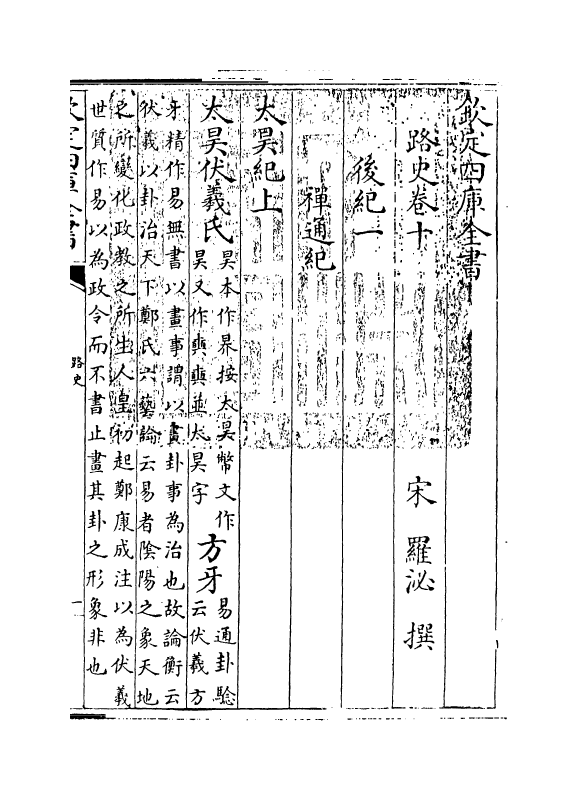 欽定四庫全書
路史卷十
宋 羅泌 撰
後紀一
禪通紀
太昊紀上
太昊伏羲氏
昊本作界按太昊幣文作
昊又作奭並太昊字
方牙
易通卦驗
云伏羲方
牙精作易無書以畫事謂以畫卦事為治也故論衡云
伏羲以卦治天下鄭氏六藝論云易者陰陽之象天地
之所變化政教之所生人皇初起鄭康成注以為伏羲
世質作易以為政令而不書止畫其卦之形象非也
欽定四庫全書
路史
一